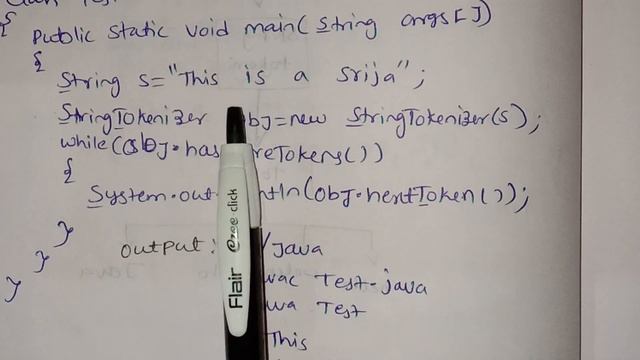 { Public static void main(String args[])
{
String s="This is a srija";
StringTokenizer obj=new StringTokenizer(s);
while(obj.has reTokens())
{
System.out ntln(obj.nextToken());
}
output: /Java
}
vac Test.java
}
va Test
This
Flair @zee click